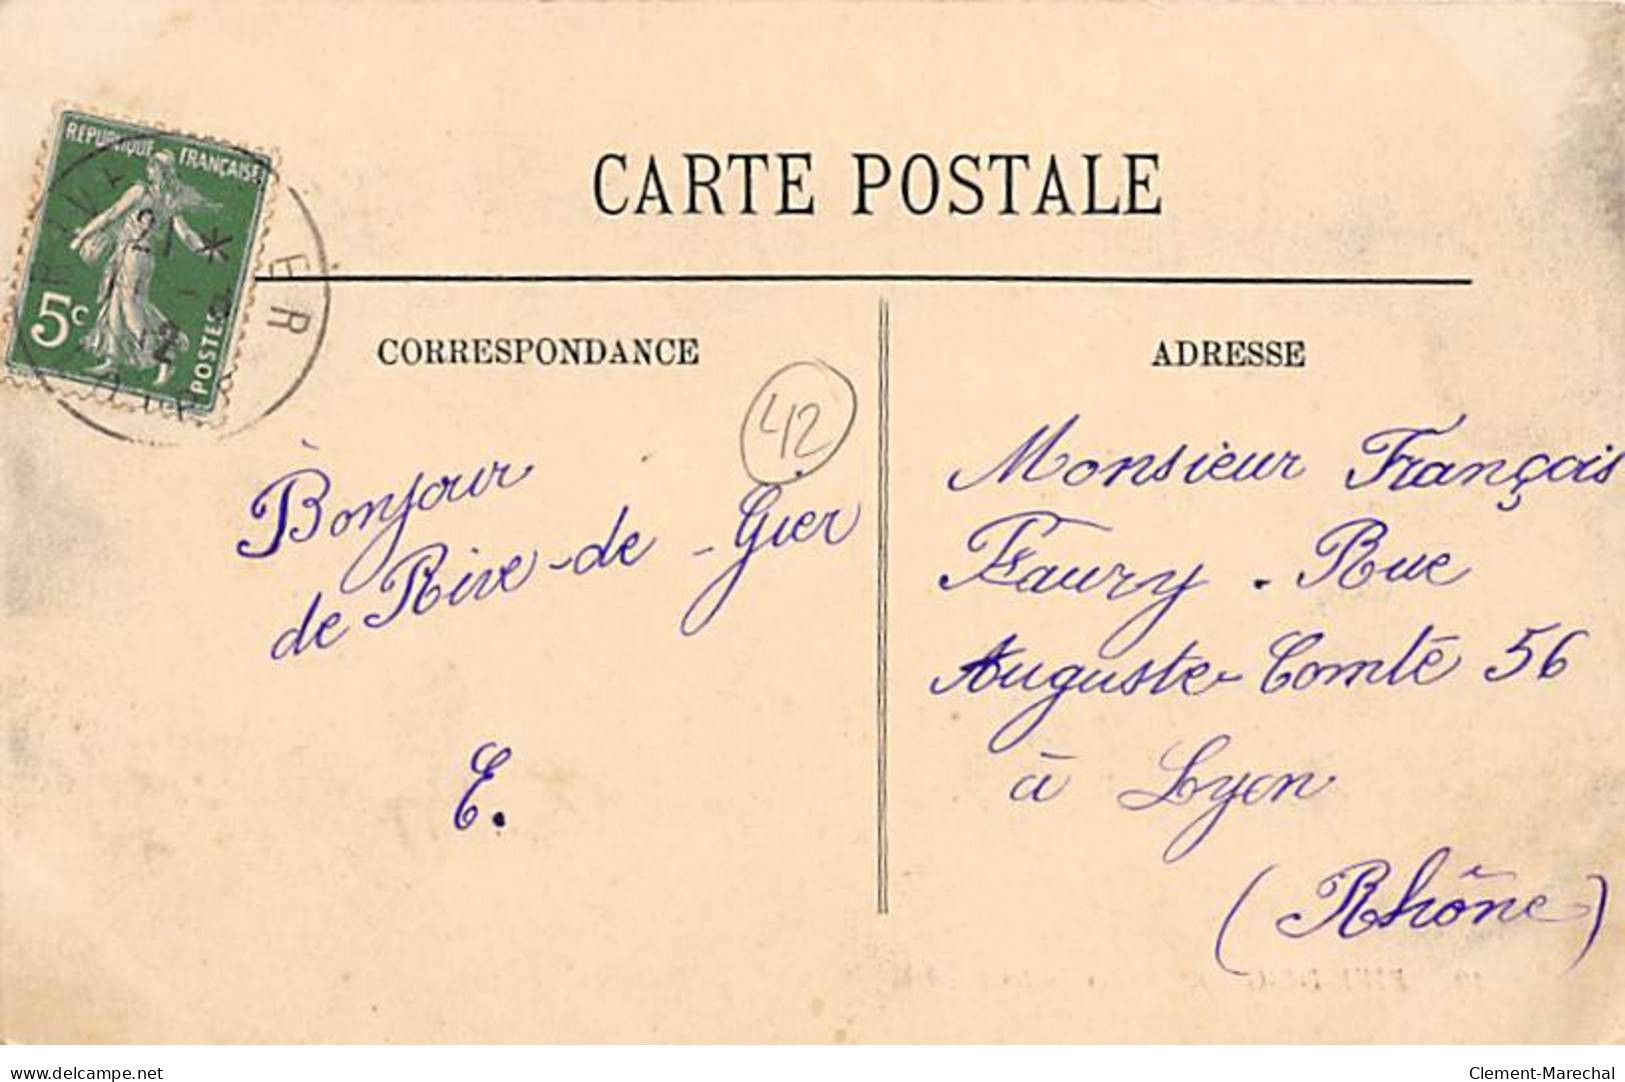 CARTE POSTALE
RÉPUBLIQUE FRANÇAISE
5c
POSTES
CORRESPONDANCE
42
Bonjour
de Rive-de-Gier
E.
ADRESSE
Monsieur François
Faury. Rue
Auguste-Comté 56
à Lyon
(Rhône)
delcampe.net
Clement-Marechal